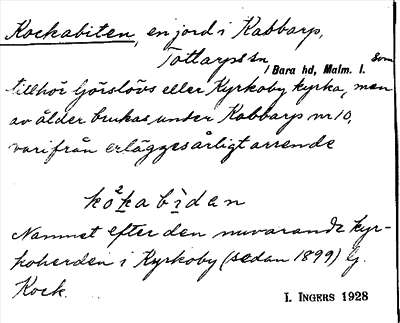 Kockabiten, en jord i Kabbarp,
Tottarps sn,
/Bara hd, Malm. l. som
tillhör Görslövs eller Kyrkoby kyrka, men
av ålder brukas under Kabbarp nr 10,
varifrån erlägges årligt arrende
kò²kabìdan
Namnet efter den nuvarande kyr-
koherden i Kyrkoby (sedan 1899) G.
Kock.
I. INGERS 1928